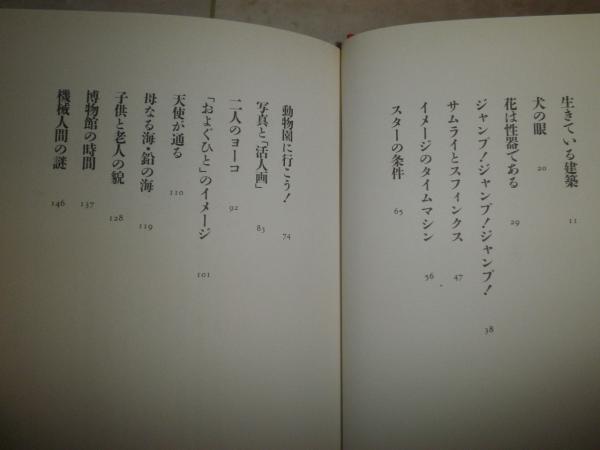 生きている建築 11
犬の眼 20
花は性器である 29
ジャンプ！ジャンプ！ジャンプ！ 38
サムライとスフィンクス 47
イメージのタイムマシン 56
スターの条件 65
動物園に行こう！ 74
写真と「活人画」 83
二人のヨーコ 92
「およぐひと」のイメージ 101
天使が通る 110
母なる海・鉛の海 119
子供と老人の貌 128
博物館の時間 137
機械人間の謎 146